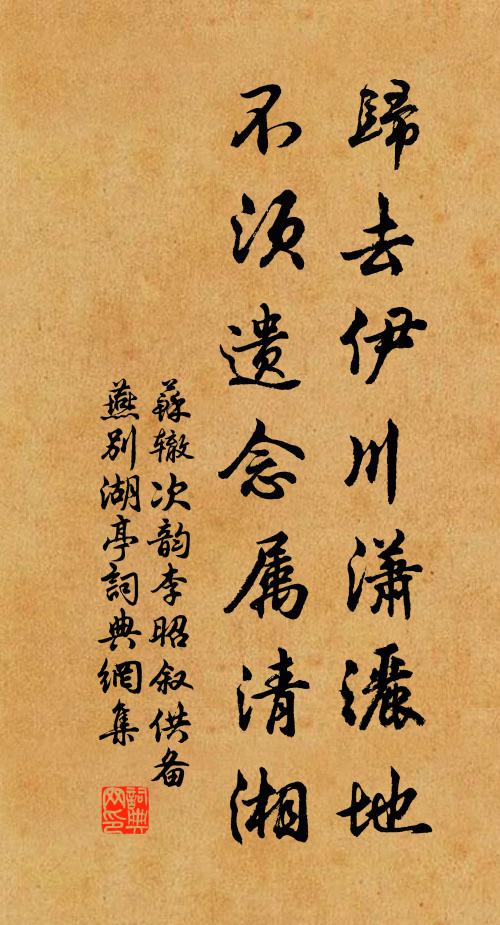 歸去伊川瀟灑地
不须遗念属清湘
蘇辙次韵李昭叙供备
燕别湖亭詞典網集
詞典網印